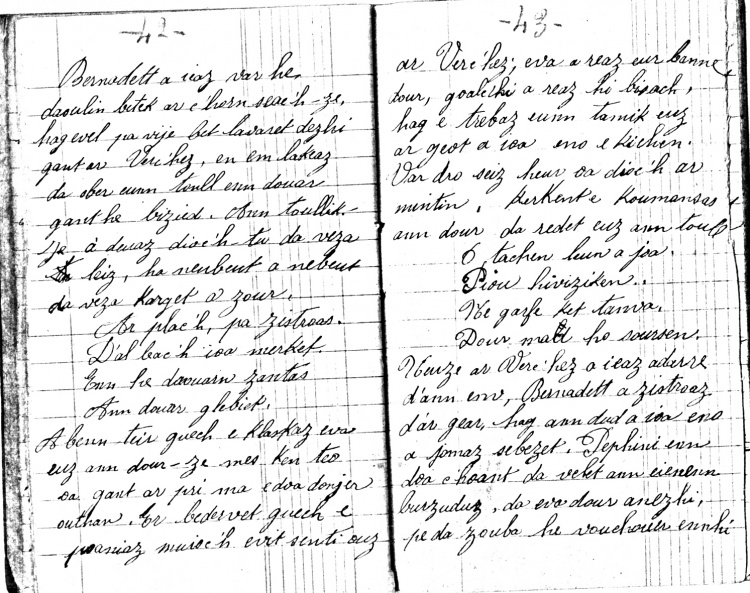 -42-
Bernadett a ieaz var he
daoulin betek ar c'horn seac'h-ze,
hag evel pa vije bet lavaret dezhi
gant ar Verc'hez, en em lakeaz
da ober eunn toull enn douar
gant he bizied. Ann toullik-
ze a deuaz dioc'h-tu da veza
leiz, ha neubeut a nebeut
da veza karget a zour.
Ar plac'h, pa zistroas.
D'al bac'h ioa merket.
Enn he daouarn zantas
Ann douar glebiet.
A benn teir guech e klaskaz eva
euz ann dour-ze mes ken teo
oa gant ar pri ma edoa donjer
outhan. Er bedervet guech e
poaniaz muioc'h evit senti ouz
-43-
ar Verc'hez; eva a reaz eur banne
dour, goalc'hi a reaz hi bizach,
hag e trebaz eunn tamik euz
ar geot a ioa eno e kichen.
Var dro seiz heur oa dioc'h ar
mintin, kerkent e koumansas
ann dour da redet euz ann toull
O, tachen leun a joa.
Piou hiviziken.
Ne garfe ket tanva.
Dour mad ho soursen.
Neuze ar Verc'hez a ieaz adarre
d'ann env, Bernadett a zistroaz
d'ar gear, hag ann dud a ioa eno
a jomaz sebezet. Pephini enn
doa c'hoant da velet ann eienenn
burzuduz, da eva dour anezhi,
pe da zouba he vouchouer ennhi